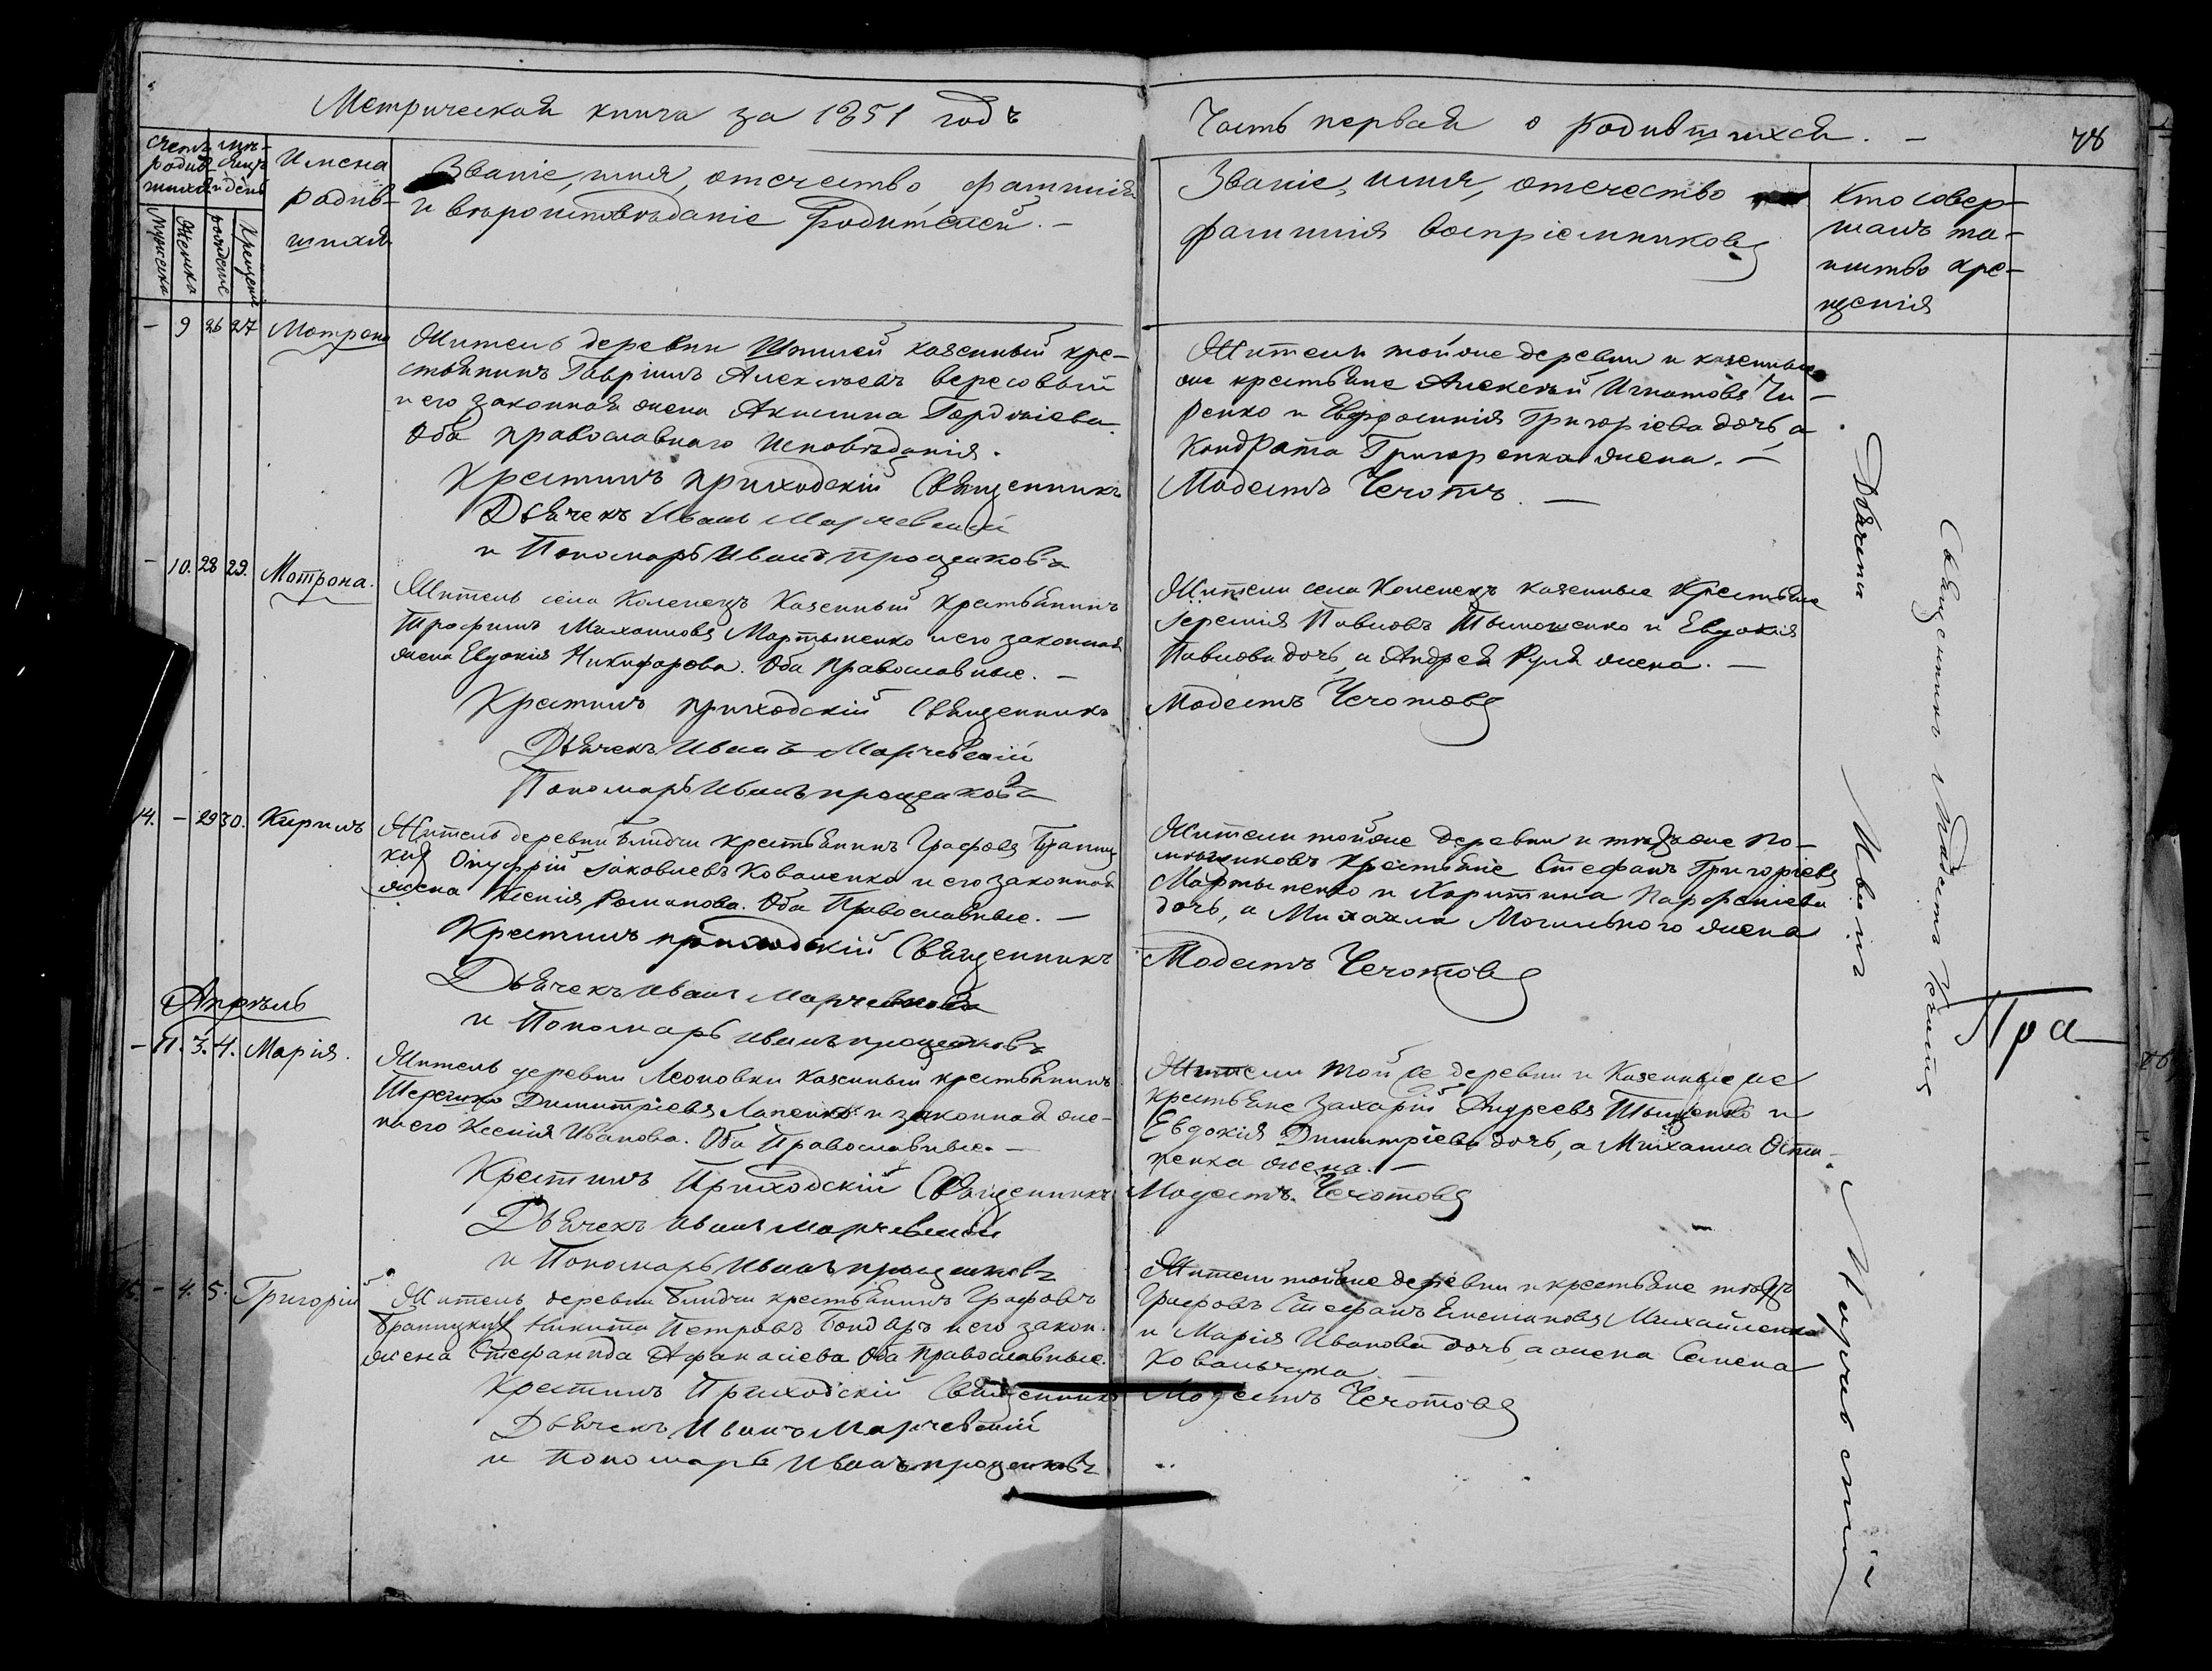 Метрическая книга за 1851 годъ
Часть первая о родившихся. —
78
Счетъ родившихся
мѣсяцъ и день
Мужеска
Женска
рожденіе
Крещеніе
Имена
родив-
шихся
Званіе, имя, отечество, фамилія
и вѣроисповѣданіе родителей. —
Званіе, имя, отечество
фамилія воспріемниковъ
Кто совер-
шалъ та-
инство кре-
щенія
— 9 26 27 Мотрона
Житель деревни казенный кре-
стьянинъ Гавриилъ Алексѣевъ Вересовый
и его законная жена Акилина Гордѣиева.
Оба православнаго исповѣданія.
Крестилъ приходскій Священникъ
Дьячекъ Иванъ Марчевскій
и Пономарь Иванъ Прощаковъ
Жители тойже деревни и казенные
же крестьяне Алексѣй Игнатовъ Чи-
ренко и Евфросинія Григорієва дочь, а
Кондрата Григоренка жена. —
Модестъ Чечотъ. —
— 10. 28 29. Мотрона.
Житель села Коленецъ Казенный Крестьянинъ
Трофимъ Михаиловъ Мартыненко и его законная
жена Евдокія Никифорова. Оба Православные. —
Крестилъ приходскій Священникъ
Дьячекъ Иванъ Марчевскій
Пономарь Иванъ Прощаковъ
Жители села Коленецъ казенные Крестьяне
Іеремія Павловъ Тымошенко и Евдокія
Павлова дочь, а Андрея Руля жена. —
Модестъ Чечотовъ
14. — 29 30. Кирилъ
Житель деревни Блидчи крестьянинъ Графовъ Браниц
кихъ Онуфрій Іаковлевъ Коваленко и его законная
жена Ксенія Романова. Оба Православные. —
Крестилъ приходскій Священникъ
Дьячекъ Иванъ Марчевскій
и Пономарь Иванъ Прощаковъ
Жители тойже деревни и тѣхъже По-
мѣщиковъ Крестьяне Стефанъ Григоріевъ
Мартыненко и Харитина Парфеніева
дочь, а Михаила Могильного жена
Модестъ Чечотовъ
Апрѣль
— 11. 3. 4. Марія.
Житель деревни Леоновки Казенный крестьянинъ
Терешко Димитріевъ Лапенко и законная же-
на его Ксенія Иванова. Оба Православные. —
Крестилъ Приходскій Священникъ
Дьячекъ Иванъ Марчевскій
и Пономарь Иванъ Прощаковъ
Жители той же деревни и Казенные же
Крестьяне Захарій Андреевъ Тыщенко и
Евдокія Димитріева дочь, а Михаила Оста-
пенка жена. —
Модестъ Чечотовъ
15. — 4. 5. Григорій
Житель деревни Блидчи крестьянинъ Графовъ
Браницкихъ Никита Петровъ Бондарь и его закон.
жена Стефанида Афанасіева Оба Православные.
Крестилъ Приходскій Священникъ
Дьячекъ Иванъ Марчевскій
и Пономарь Иванъ Прощаковъ
Жители тойже деревни и крестьяне тѣхъ
Графовъ Стефанъ Емеліановъ Михайленко
и Марія Иванова дочь, а жена Семена
Ковальчука. —
Модестъ Чечотовъ
Священникъ Модестъ Чечотъ
Дьячекъ Иванъ Марчевскій
Пра